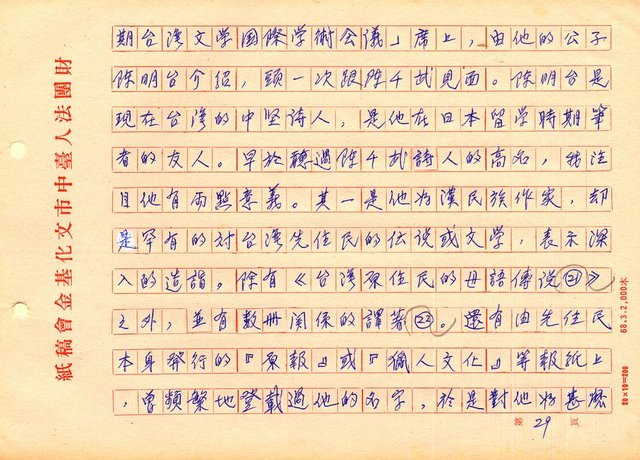 期台湾文学国際学術会議」席上，由他的公子
陳明台介紹，頭一次跟陳千武見面。陳明台是
現在台湾的中坚詩人，是他在日本留学時期筆
者的友人。早於聽過陳千武詩人的高名，我注
目他有兩點意義。其一是他為漢民族作家，却
是罕有的对台湾先住民的伝说或文学，表示深
入的造詣。除有《台湾原住民的母語傳说㉑》
之外，並有數冊関係的譯著㉒。還有由先住民
本身発行的『原報』或『猟人文化』等報紙上
，曾頻繁地登載過他的名字，於是對他
第29頁
財團法人臺中市文化基金會稿紙
68.3-2,000本
20×10=200